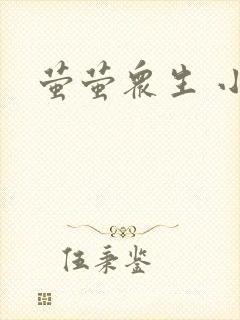 萤萤众生 小
伍秉鉴